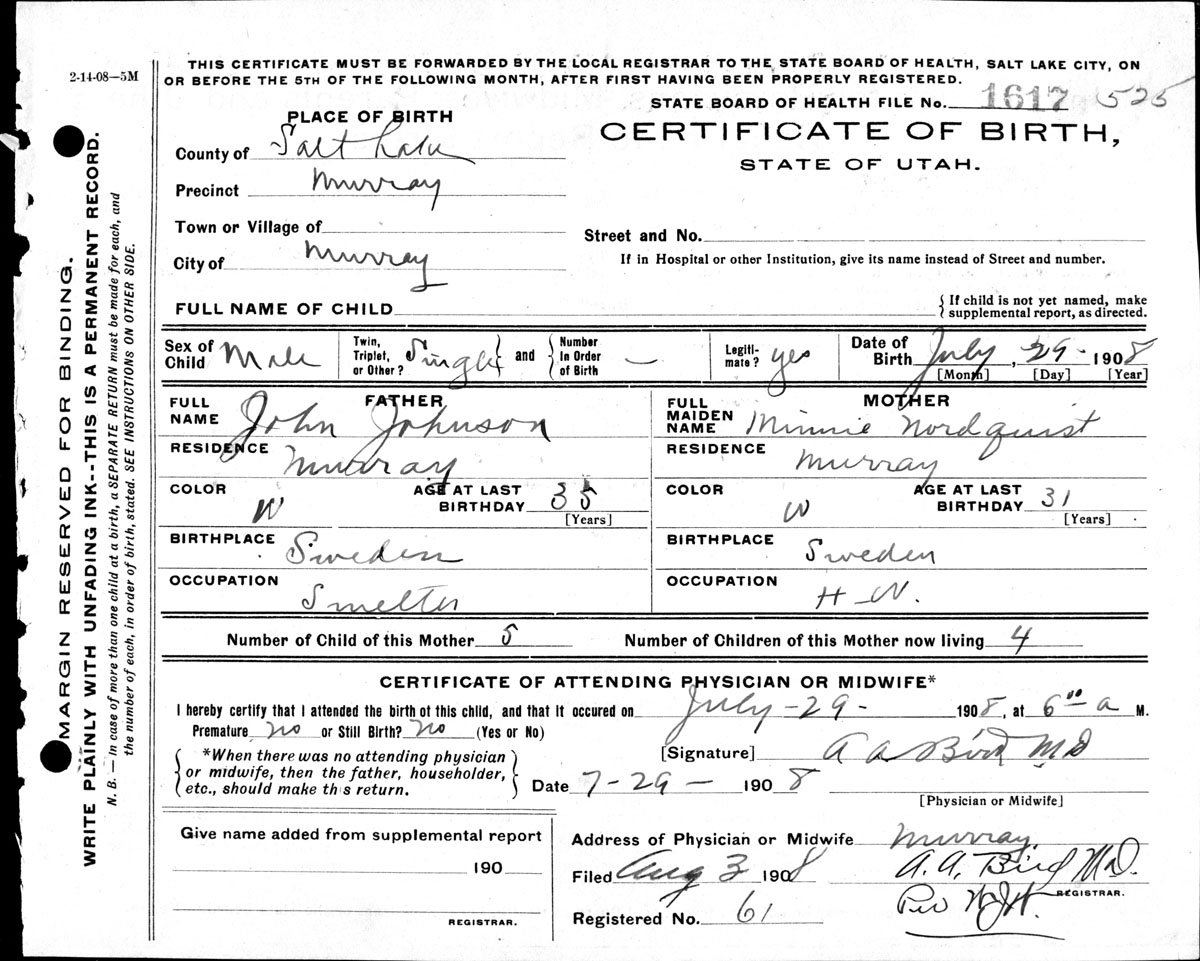 2-14-08—5M
THIS CERTIFICATE MUST BE FORWARDED BY THE LOCAL REGISTRAR TO THE STATE BOARD OF HEALTH, SALT LAKE CITY, ON
OR BEFORE THE 5TH OF THE FOLLOWING MONTH, AFTER FIRST HAVING BEEN PROPERLY REGISTERED.
STATE BOARD OF HEALTH FILE No. 1617 525
PLACE OF BIRTH
CERTIFICATE OF BIRTH,
STATE OF UTAH.
County of Salt Lake
Precinct Murray
Town or Village of
City of Murray
Street and No.
If in Hospital or other Institution, give its name instead of Street and number.
FULL NAME OF CHILD
{ If child is not yet named, make
supplemental report, as directed.
Sex of Child Male
Twin, Triplet, or Other? Single } and { Number In Order of Birth —
Legitimate? yes
Date of Birth July, 29- 1908
[Month] [Day] [Year]
FATHER
FULL NAME John Johnson
RESIDENCE Murray
COLOR W
AGE AT LAST BIRTHDAY 35
[Years]
BIRTHPLACE Sweden
OCCUPATION Smelter
MOTHER
FULL MAIDEN NAME Minnie Nordquist
RESIDENCE Murray
COLOR W
AGE AT LAST BIRTHDAY 31
[Years]
BIRTHPLACE Sweden
OCCUPATION H-W.
Number of Child of this Mother 5 Number of Children of this Mother now living 4
CERTIFICATE OF ATTENDING PHYSICIAN OR MIDWIFE*
I hereby certify that I attended the birth of this child, and that it occured on July-29- 1908, at 6 00 a M.
Premature no or Still Birth? No (Yes or No)
[Signature] A A Bird MD
{ *When there was no attending physician
or midwife, then the father, householder,
etc., should make this return. }
Date 7-29- 1908
[Physician or Midwife]
Give name added from supplemental report
190
REGISTRAR.
Address of Physician or Midwife Murray
Filed Aug 3 1908 A. A. Bird M.D.
REGISTRAR.
Registered No. 61 Per
MARGIN RESERVED FOR BINDING.
WRITE PLAINLY WITH UNFADING INK--THIS IS A PERMANENT RECORD.
N. B. — In case of more than one child at a birth, a SEPARATE RETURN must be made for each, and
the number of each, in order of birth, stated. SEE INSTRUCTIONS ON OTHER SIDE.